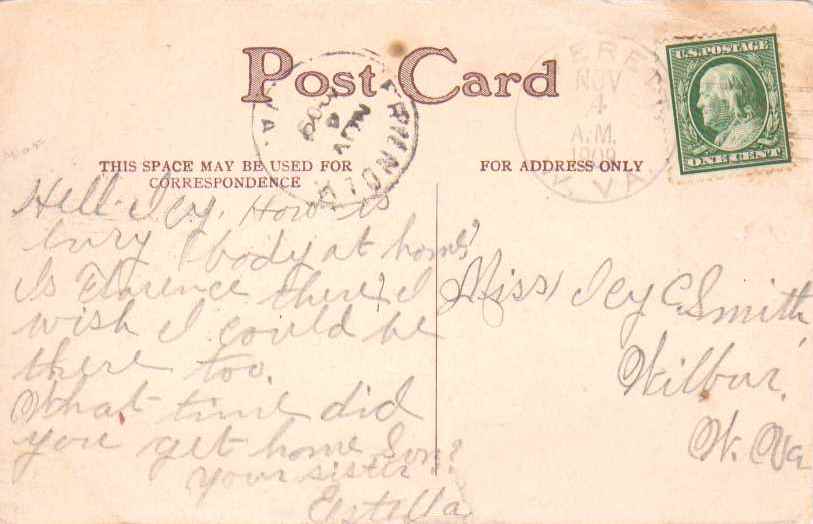 Post Card
U.S. POSTAGE
ONE CENT
NOV
4
A.M.
1909
W. VA.
FRIENDLY
W. VA.
NOV
4
1909
THIS SPACE MAY BE USED FOR
CORRESPONDENCE
FOR ADDRESS ONLY
Hell. Icy. How is
every body at home?
Is Florence there? I
wish I could be
there too.
What time did
you get home Sun?
Your sister
Estella
Miss Icy C. Smith,
Wilbur,
W. Va